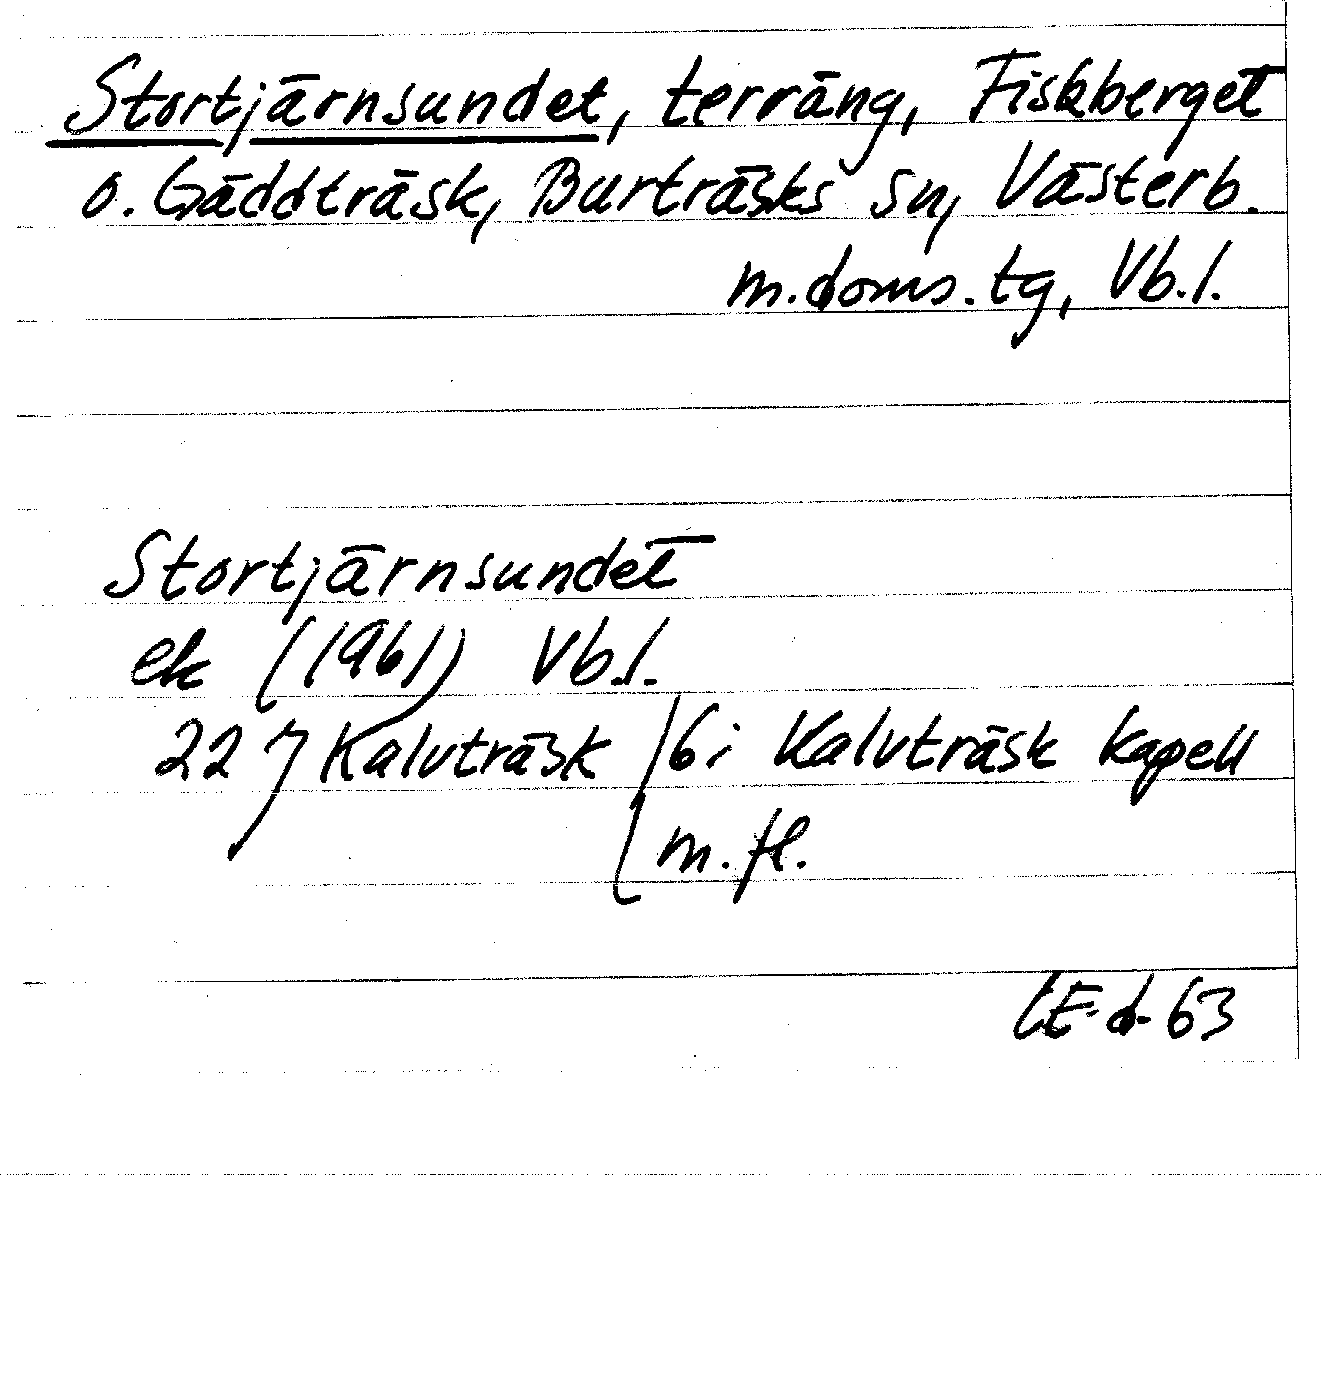 Stortjärnsundet, terräng, Fiskberget
o. Gäddträsk, Burträsks sn, Västerb.
m. doms. tg, Vb. l.
Stortjärnsundet
ek (1961) Vb. l.
22 J Kalvträsk / 6i Kalvträsk kapell
m. fl.
63